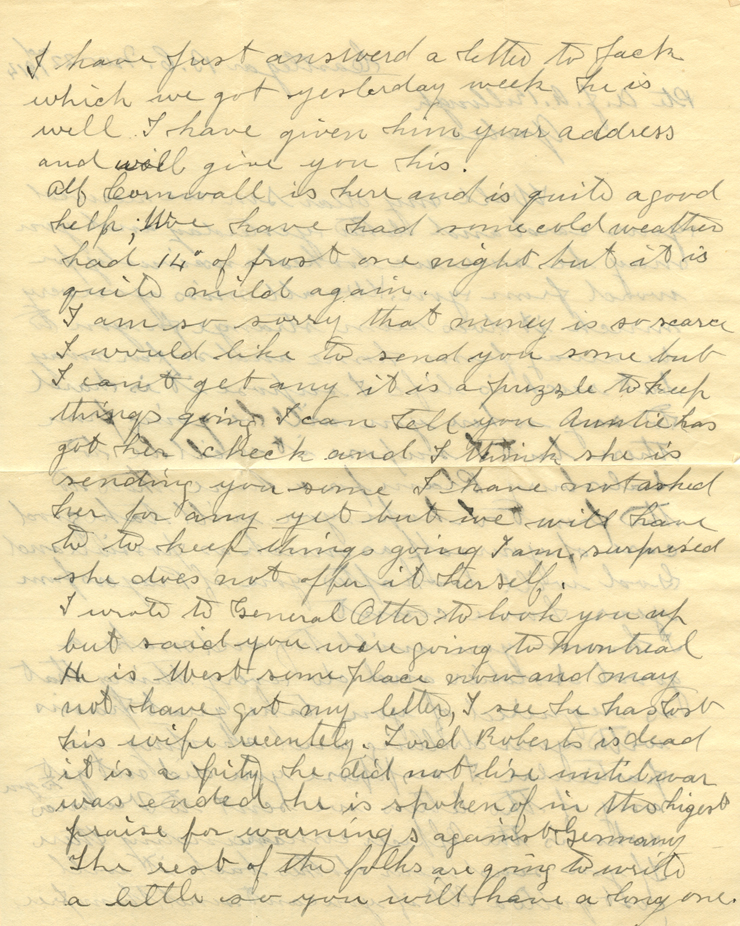 I have just answerd a letter to Jack
which we got yesterday week he is
well. I have given him your address
and will give you his.
Alf Cornwall is here and is quite a good
help; We have had some cold weather
had 14° of frost one night but it is
quite mild again.
I am so sorry that money is so scarce
I would like to send you some but
I can't get any it is a puzzle to keep
things going I can tell you Auntie has
got her check and I think she is
sending you some I have not asked
her for any yet but we will have
to to keep things going I am surprised
she does not offer it herself.
I wrote to General Otter to look you up
but said you were going to Montreal
He is West some place now and may
not have got my letter, I see he has lost
his wife recentely. Lord Roberts is dead
it is a pity he did not live until war
was ended he is spoken of in the higest
praise for warnings against Germany
The rest of the folks are going to write
a little so you will have a long one.